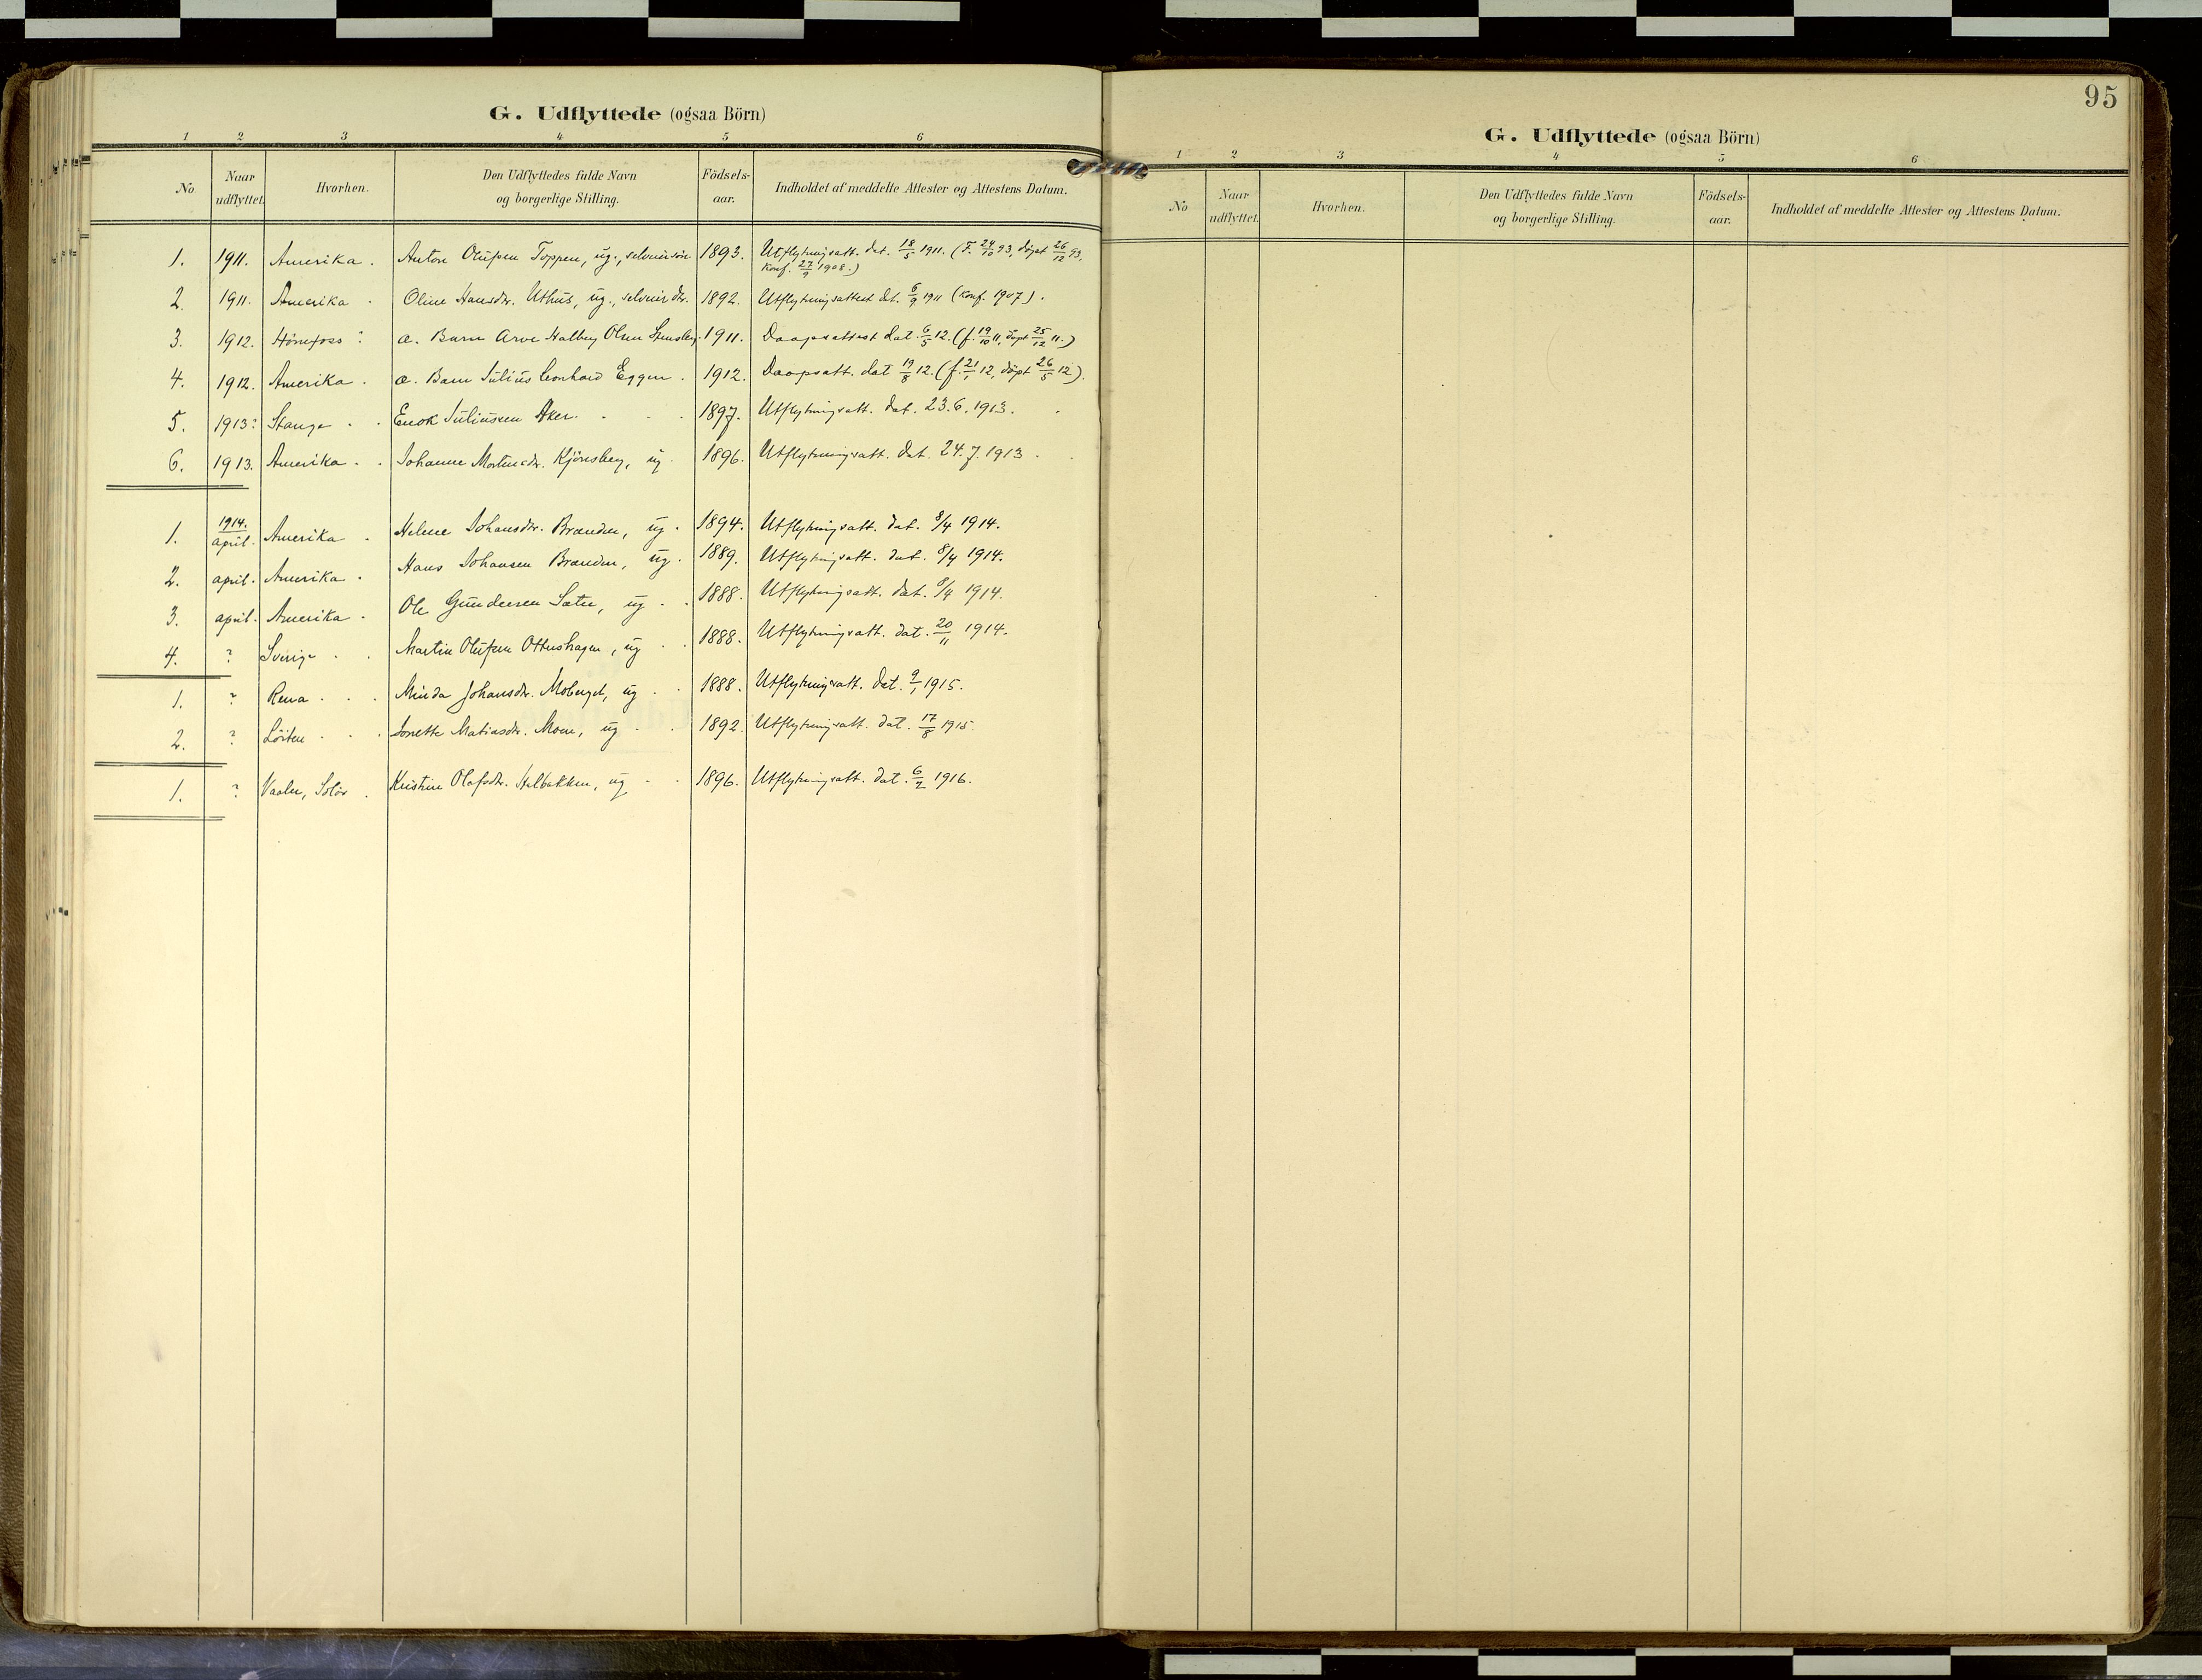 G. Udflyttede (ogsaa Börn)
1 2 3 4 5 6
No Naar udflyttet. Hvorhen. Den Udflyttedes fulde Navn og borgerlige Stilling. Födsels-aar. Indholdet af meddelte Attester og Attestens Datum.
1. 1911. Amerika. Anton Olufsen Toppen, ug., selveiersön 1893. Utflytningsatt. dat. 18/5 1911. (F. 24/10 93, döpt 26/12 93,
Konf. 27/9 1908.)
2. 1911. Amerika. Oline Hansdtr. Uthus, ug., selveierdtr. 1892. Utflytningsattest dat. 6/9 1911 (Konf. 1907).
3. 1912. Hönefoss: a. Barn Arve Halberg Olsen 1911. Daapsattest dat. 6/5 12. (f. 19/10 11, döpt 25/12 11.)
4. 1912. Amerika. a. Barn Julius Leonhard Eggen. 1912. Daapsatt. dat 19/8 12. (f. 21/1 12, döpt 26/5 12).
5. 1913: Stange. Enok Juliussen Aker. 1897. Utflytningsatt. dat. 23.6.1913.
6. 1913. Amerika. Johanne Mortensdtr. Kjönsberg, ug. 1896. Utflytningsatt. dat. 24.7.1913.
1. 1914. april. Amerika. Helene Johansdtr. Brænden, ug. 1894. Utflytningsatt. dat. 8/4 1914.
2. april. Amerika. Hans Johansen Brænden, ug. 1889. Utflytningsatt. dat. 8/4 1914.
3. april. Amerika. Ole Gundersen Sætre, ug. 1888. Utflytningsatt. dat. 8/4 1914.
4. ? Sverige. Martin Olufsen Ottershagen, ug. 1888. Utflytningsatt. dat. 20/11 1914.
1. ? Rena. Minda Johansdtr. Moberget, ug. 1888. Utflytningsatt. dat. 9/1 1915.
2. ? Löiten. Jonette Matiasdtr. Moen, ug. 1892. Utflytningsatt. dat. 17/8 1915.
1. ? Vaaler, Solör. Kristine Olafsdtr. 1896. Utflytningsatt. dat. 6/2 1916.
95
G. Udflyttede (ogsaa Börn)
1 2 3 4 5 6
No Naar udflyttet. Hvorhen. Den Udflyttedes fulde Navn og borgerlige Stilling. Födsels-aar. Indholdet af meddelte Attester og Attestens Datum.